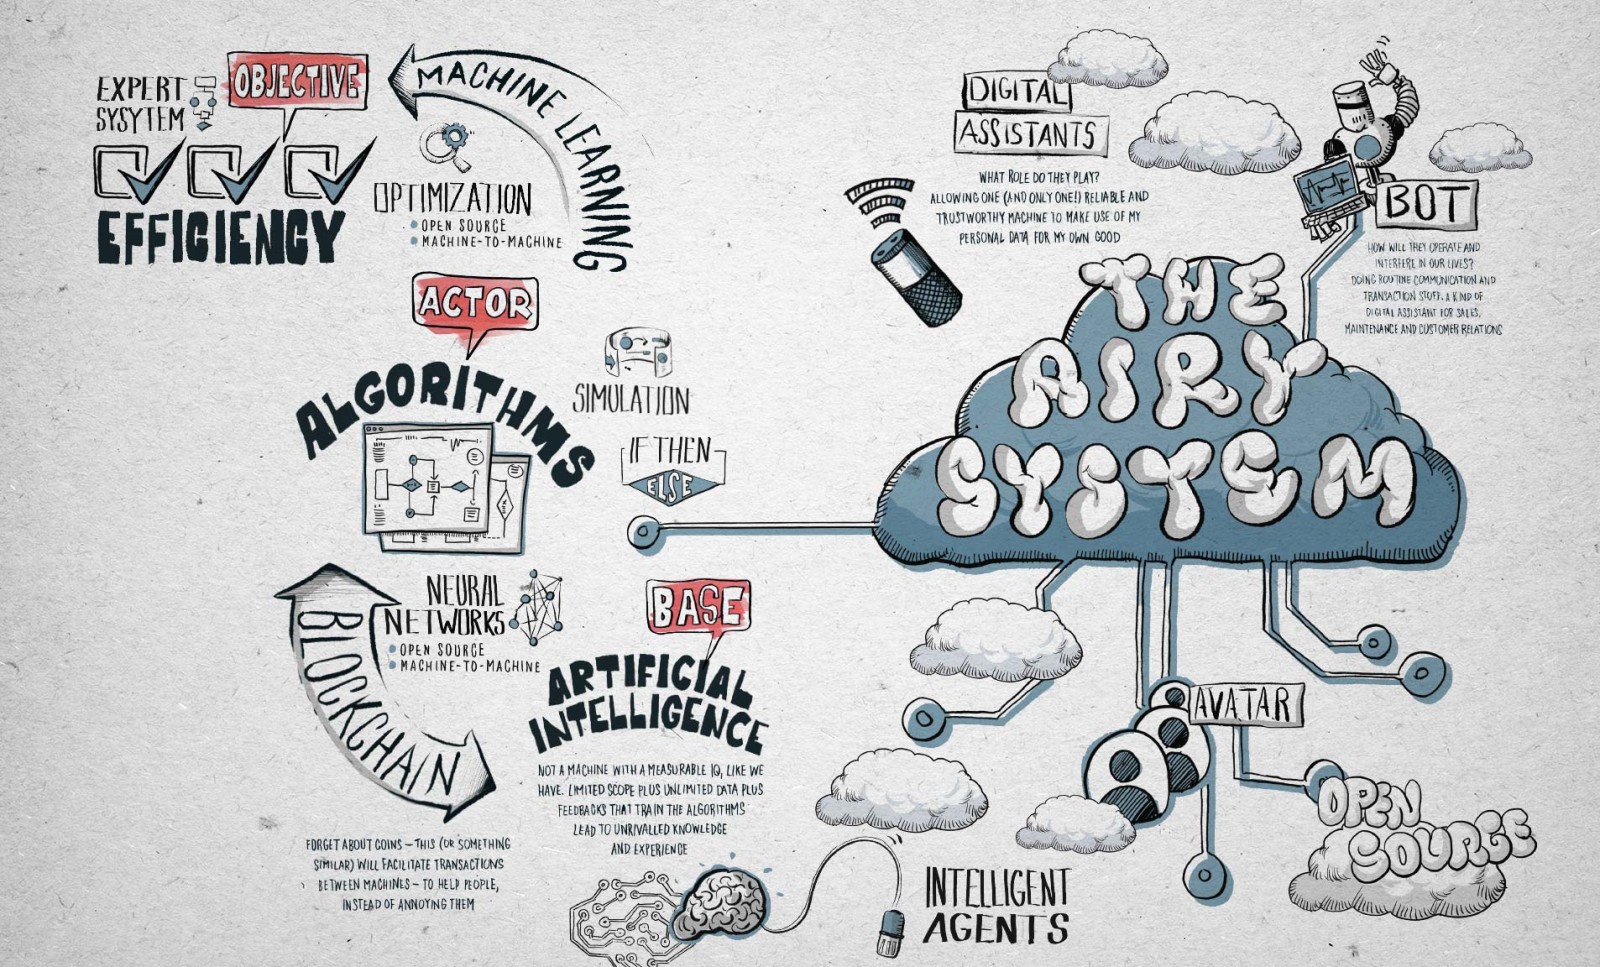 EXPERT
SYSYTEM
OBJECTIVE
EFFICIENCY
MACHINE LEARNING
OPTIMIZATION
OPEN SOURCE
MACHINE-TO-MACHINE
ACTOR
ALGORITHMS
SIMULATION
IF THEN
ELSE
BLOCKCHAIN
NEURAL
NETWORKS
OPEN SOURCE
MACHINE-TO-MACHINE
FORGET ABOUT COINS – THIS (OR SOMETHING
SIMILAR) WILL FACILITATE TRANSACTIONS
BETWEEN MACHINES – TO HELP PEOPLE,
INSTEAD OF ANNOYING THEM
BASE
ARTIFICIAL
INTELLIGENCE
NOT A MACHINE WITH A MEASURABLE IQ, LIKE WE
HAVE. LIMITED SCOPE PLUS UNLIMITED DATA PLUS
FEEDBACKS THAT TRAIN THE ALGORITHMS
LEAD TO UNRIVALLED KNOWLEDGE
AND EXPERIENCE
DIGITAL
ASSISTANTS
WHAT ROLE DO THEY PLAY?
ALLOWING ONE (AND ONLY ONE!) RELIABLE AND
TRUSTWORTHY MACHINE TO MAKE USE OF MY
PERSONAL DATA FOR MY OWN GOOD
BOT
HOW WILL THEY OPERATE AND
INTERFERE IN OUR LIVES?
DOING ROUTINE COMMUNICATION AND
TRANSACTION STUFF. A KIND OF
DIGITAL ASSISTANT FOR SALES,
MAINTENANCE AND CUSTOMER RELATIONS
THE
AIRY
SYSTEM
AVATAR
OPEN
SOURCE
INTELLIGENT
AGENTS